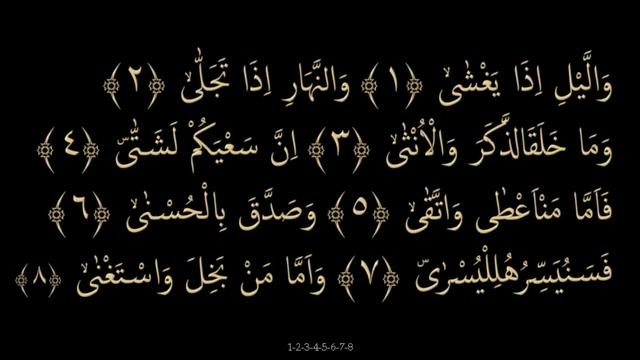 وَالَّيْلِ اِذَا يَغْشٰىۙ ﴿١﴾ وَالنَّهَارِ اِذَا تَجَلّٰىۙ ﴿٢﴾
وَمَا خَلَقَالذَّكَرَ وَالْاُنْثٰىۙ ﴿٣﴾ اِنَّ سَعْيَكُمْ لَشَتّٰىّ ﴿٤﴾
فَاَمَّا مَنْاَعْطٰى وَاتَّقٰىۙ ﴿٥﴾ وَصَدَّقَ بِالْحُسْنٰىۙ ﴿٦﴾
فَسَنُيَسِّرُهُلِلْيُسْرٰىّ ﴿٧﴾ وَاَمَّا مَنْ بَخِلَ وَاسْتَغْنٰىۙ ﴿٨﴾
1-2-3-4-5-6-7-8